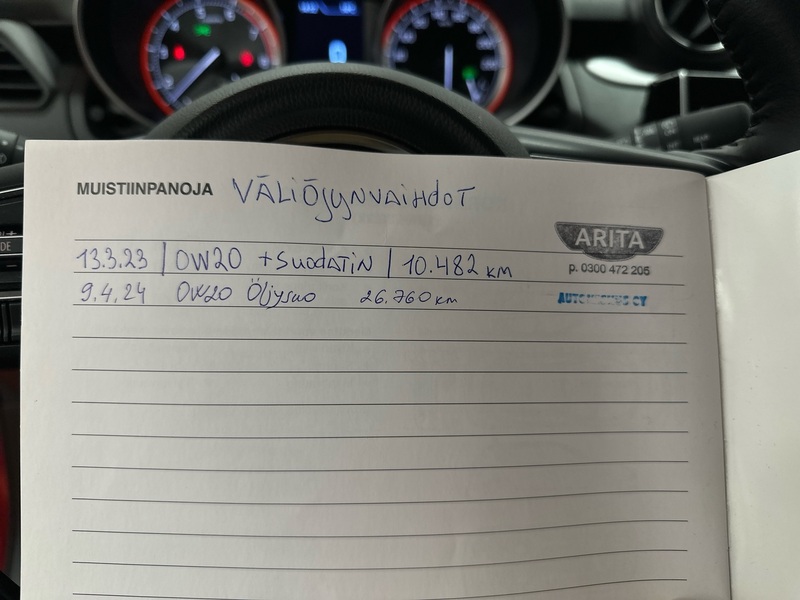 MUISTIINPANOJA VÄLIÖJYNVAIHDOT
ARITA
13.3.23 | 0W20 +SUODATIN | 10.482 KM
p. 0300 472 205
9.4.24 0W20 Öljysuo 26.760 km